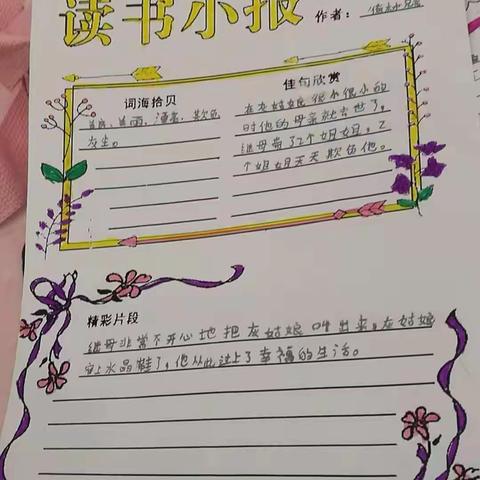 读书小报
作者：
词海拾贝
漂亮、欺负
发生。
佳句欣赏
在灰姑娘很小很小的
时他的母亲就去世了。
继母带了2个姐姐，2
个姐姐天天欺负他。
精彩片段
继母非常不开心地把灰姑娘叫出来，灰姑娘
穿上水晶鞋了，他从此过上了幸福的生活。